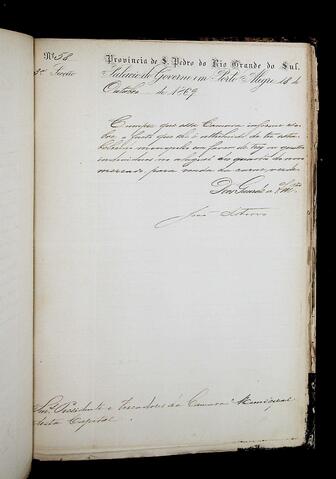 Nº 58
Provincia de S. Pedro do Rio Grande do Sul.
3ª Secção
Palacio do Governo em Porto Alegre 18 de
Outubro de 1869
Cumpre que essa Camara informe so-
bre o facto que lhe é attribuido de ter esta-
belecido monopolio em favor de tres ou quatro
individuos no aluguel de quartos do novo
mercado para venda da carne verde.
Deus Guarde a
João
Snrs. Presidente e Vereadores da Camara Municipal
desta Capital